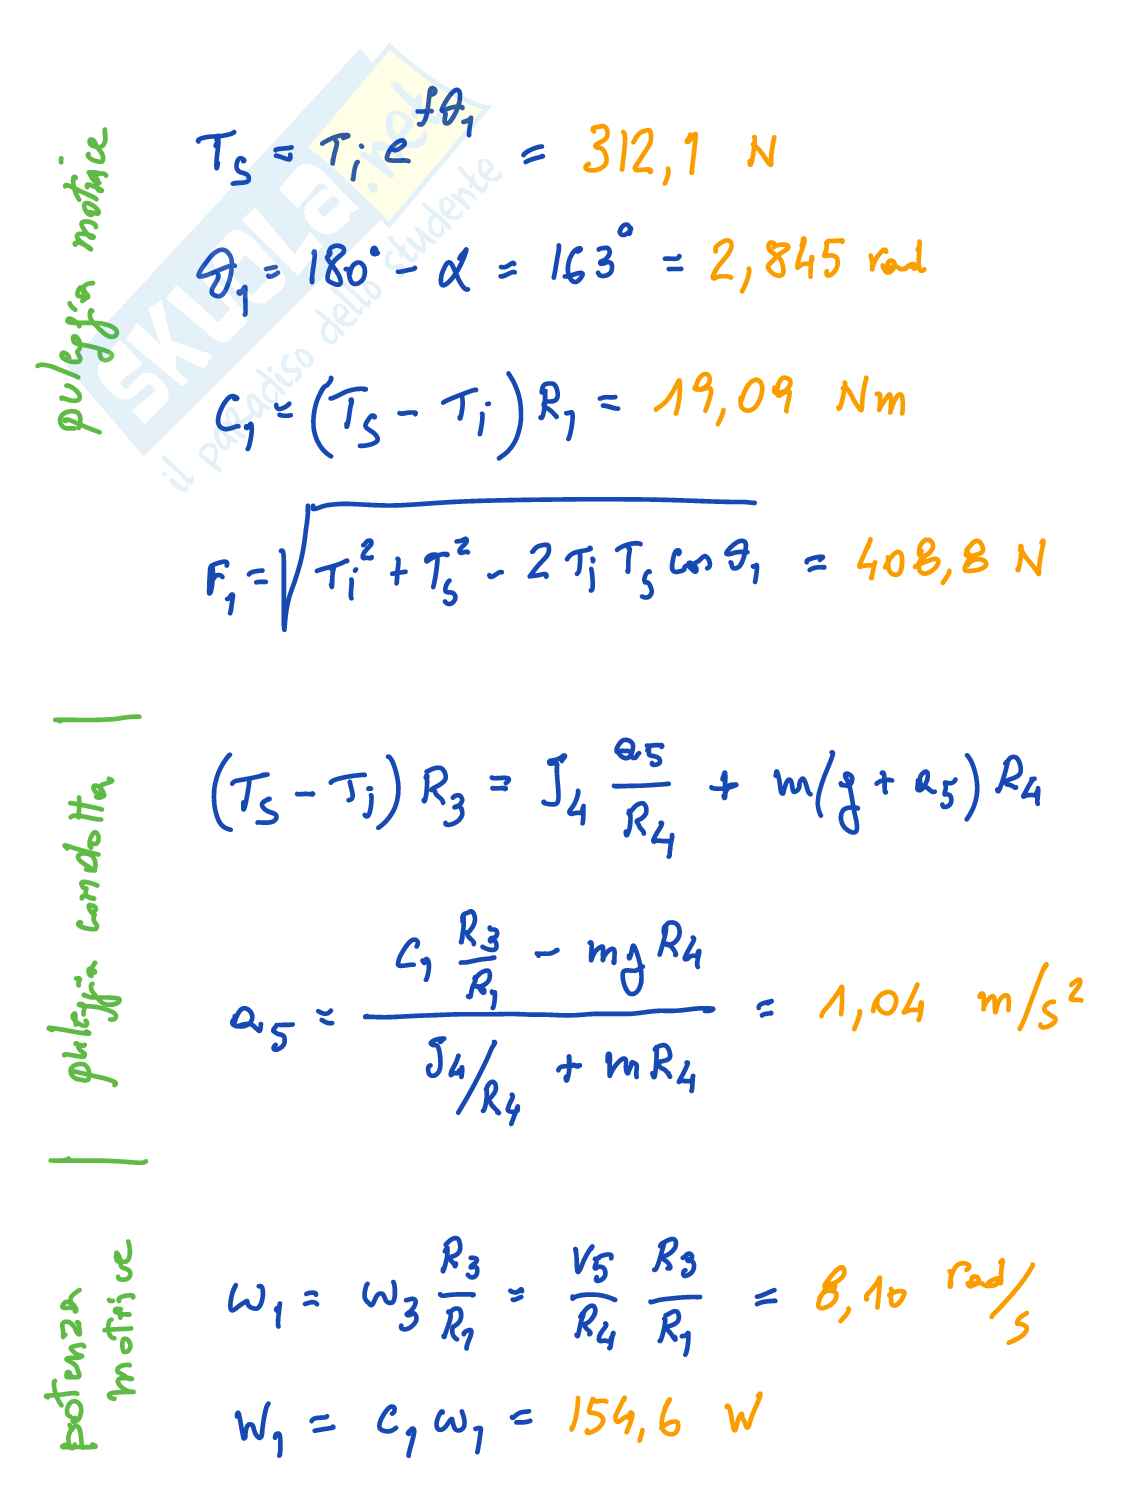 puleggia motrice
T_s = T_i e^{fϑ_1} = 312,1 N
ϑ_1 = 180° - α = 163° = 2,845 rad
C_1 = (T_s - T_i) R_1 = 19,09 Nm
F_1 = √(T_i² + T_s² - 2 T_i T_s cos ϑ_1) = 408,8 N
puleggia condotta
(T_s - T_i) R_3 = J_4 a_5/R_4 + m(g + a_5) R_4
a_5 = (C_1 R_3/R_1 - mg R_4)/(J_4/R_4 + m R_4) = 1,04 m/s²
potenza motrice
ω_1 = ω_3 R_3/R_1 = v_5/R_4 R_3/R_1 = 8,10 rad/s
W_1 = C_1 ω_1 = 154,6 W
SKUOLA.net
il paradiso dello studente